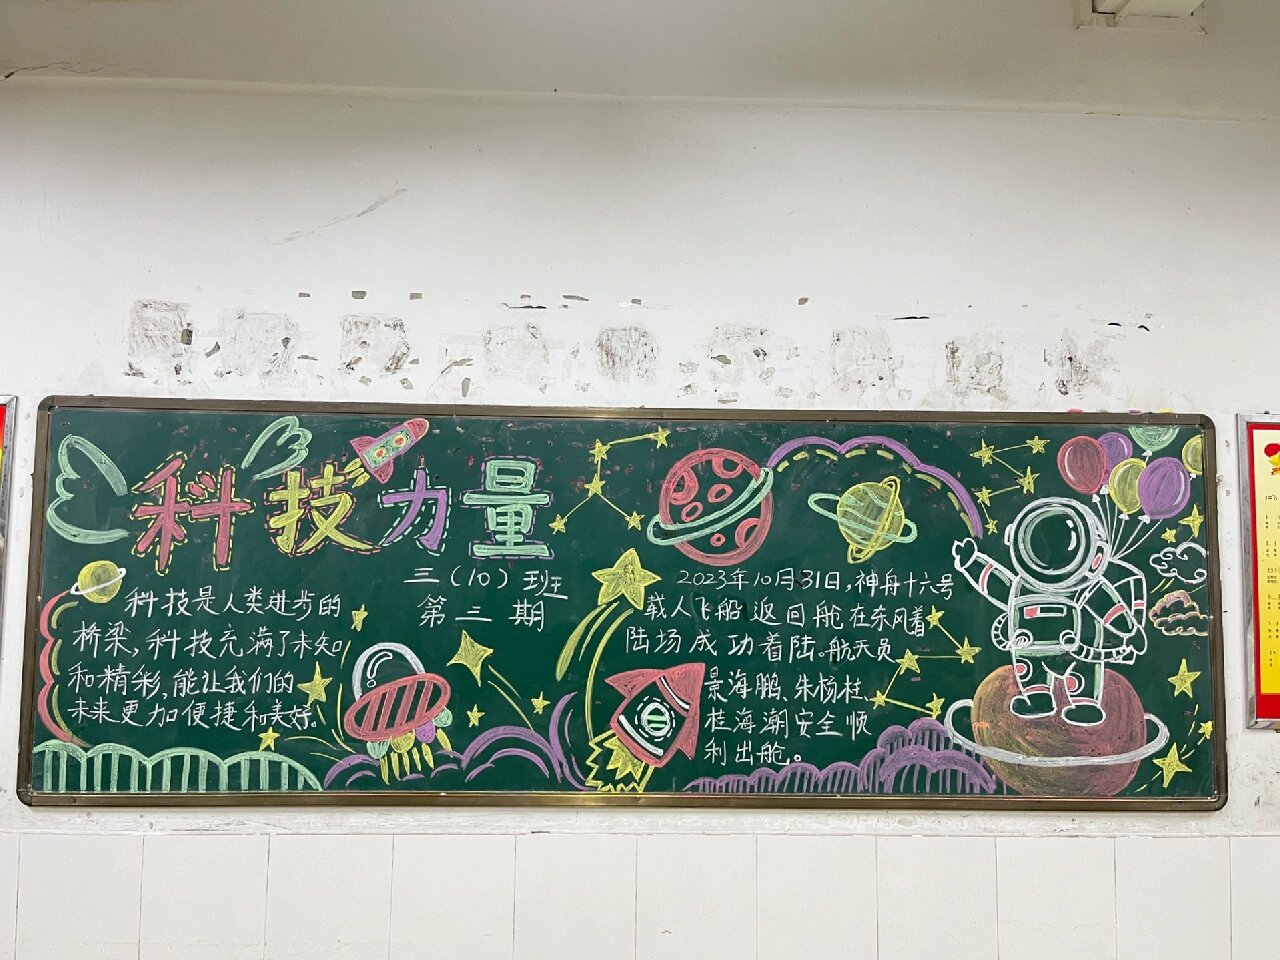 科技力量
三（10）班
第三期
科技是人类进步的
桥梁，科技充满了未知
和精彩，能让我们的
未来更加便捷和美好。
2023年10月31日，神舟十六号
载人飞船返回舱在东风着
陆场成功着陆。航天员
景海鹏、朱杨柱、
桂海潮安全顺
利出舱。